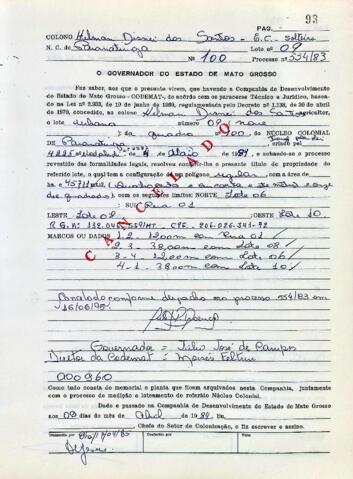 93
PAG.
COLONO Helnan Disnei dos Santos - E.C. solteiro
N. C. de Paranatinga Lote nº 09
Nº 100 Processo nº 554/83
O GOVERNADOR DO ESTADO DE MATO GROSSO
Faz saber, aos que o presente virem, que havendo a Companhia de Desenvolvimento
do Estado de Mato Grosso - CODEMAT-, de acôrdo com os pareceres Técnico e Jurídico, basea-
dos na Lei nº 2.933, de 19 de junho de 1969, regulamentada pelo Decreto nº 1.138, de 30 de abril
de 1970, concedido, ao colono Helnan Disnei dos Santos, agricultor,
o lote urbano número 09 nove
quadra 100, do NÚCLEO COLONIAL
DE Paranatinga criado pel
4225 de 4 Maio 1981, e achando-se o processo
revestido das formalidades legais, resolveu conferir-lhe o presente título de propriedade do
referido lote, o qual tem a configuração de um polígono regular, com a área de
ha e 457
de quadrados), com os seguintes limites: NORTE Lote 06
SUL Rua 01
LESTE Lote 08 OESTE Lote 10
CPF.
MARCOS OU DADOS 1.2. 12,00m com Rua 01
2.3. 38,00m com Lote 08
3.4. 12,00m com Lote 06
4.1. 38,00m com Lote 10
CANCELADO
Cancelado conforme despacho no processo 554/83 em
16/06/95.
Governador = Júlio José de Campos
Diretor da Codemat = Moisés Feltrin
000960
Como tudo consta do memorial e planta que ficam arquivados nesta Companhia, juntamente
com o processo de medição e loteamento do referido Núcleo Colonial.
Dado e passado na Companhia de Desenvolvimento do Estado de Mato Grosso
aos 09 dias do mês de Abril de 1984. Eu,
Chefe do Setor de Colonização, o fiz escrever e assino.